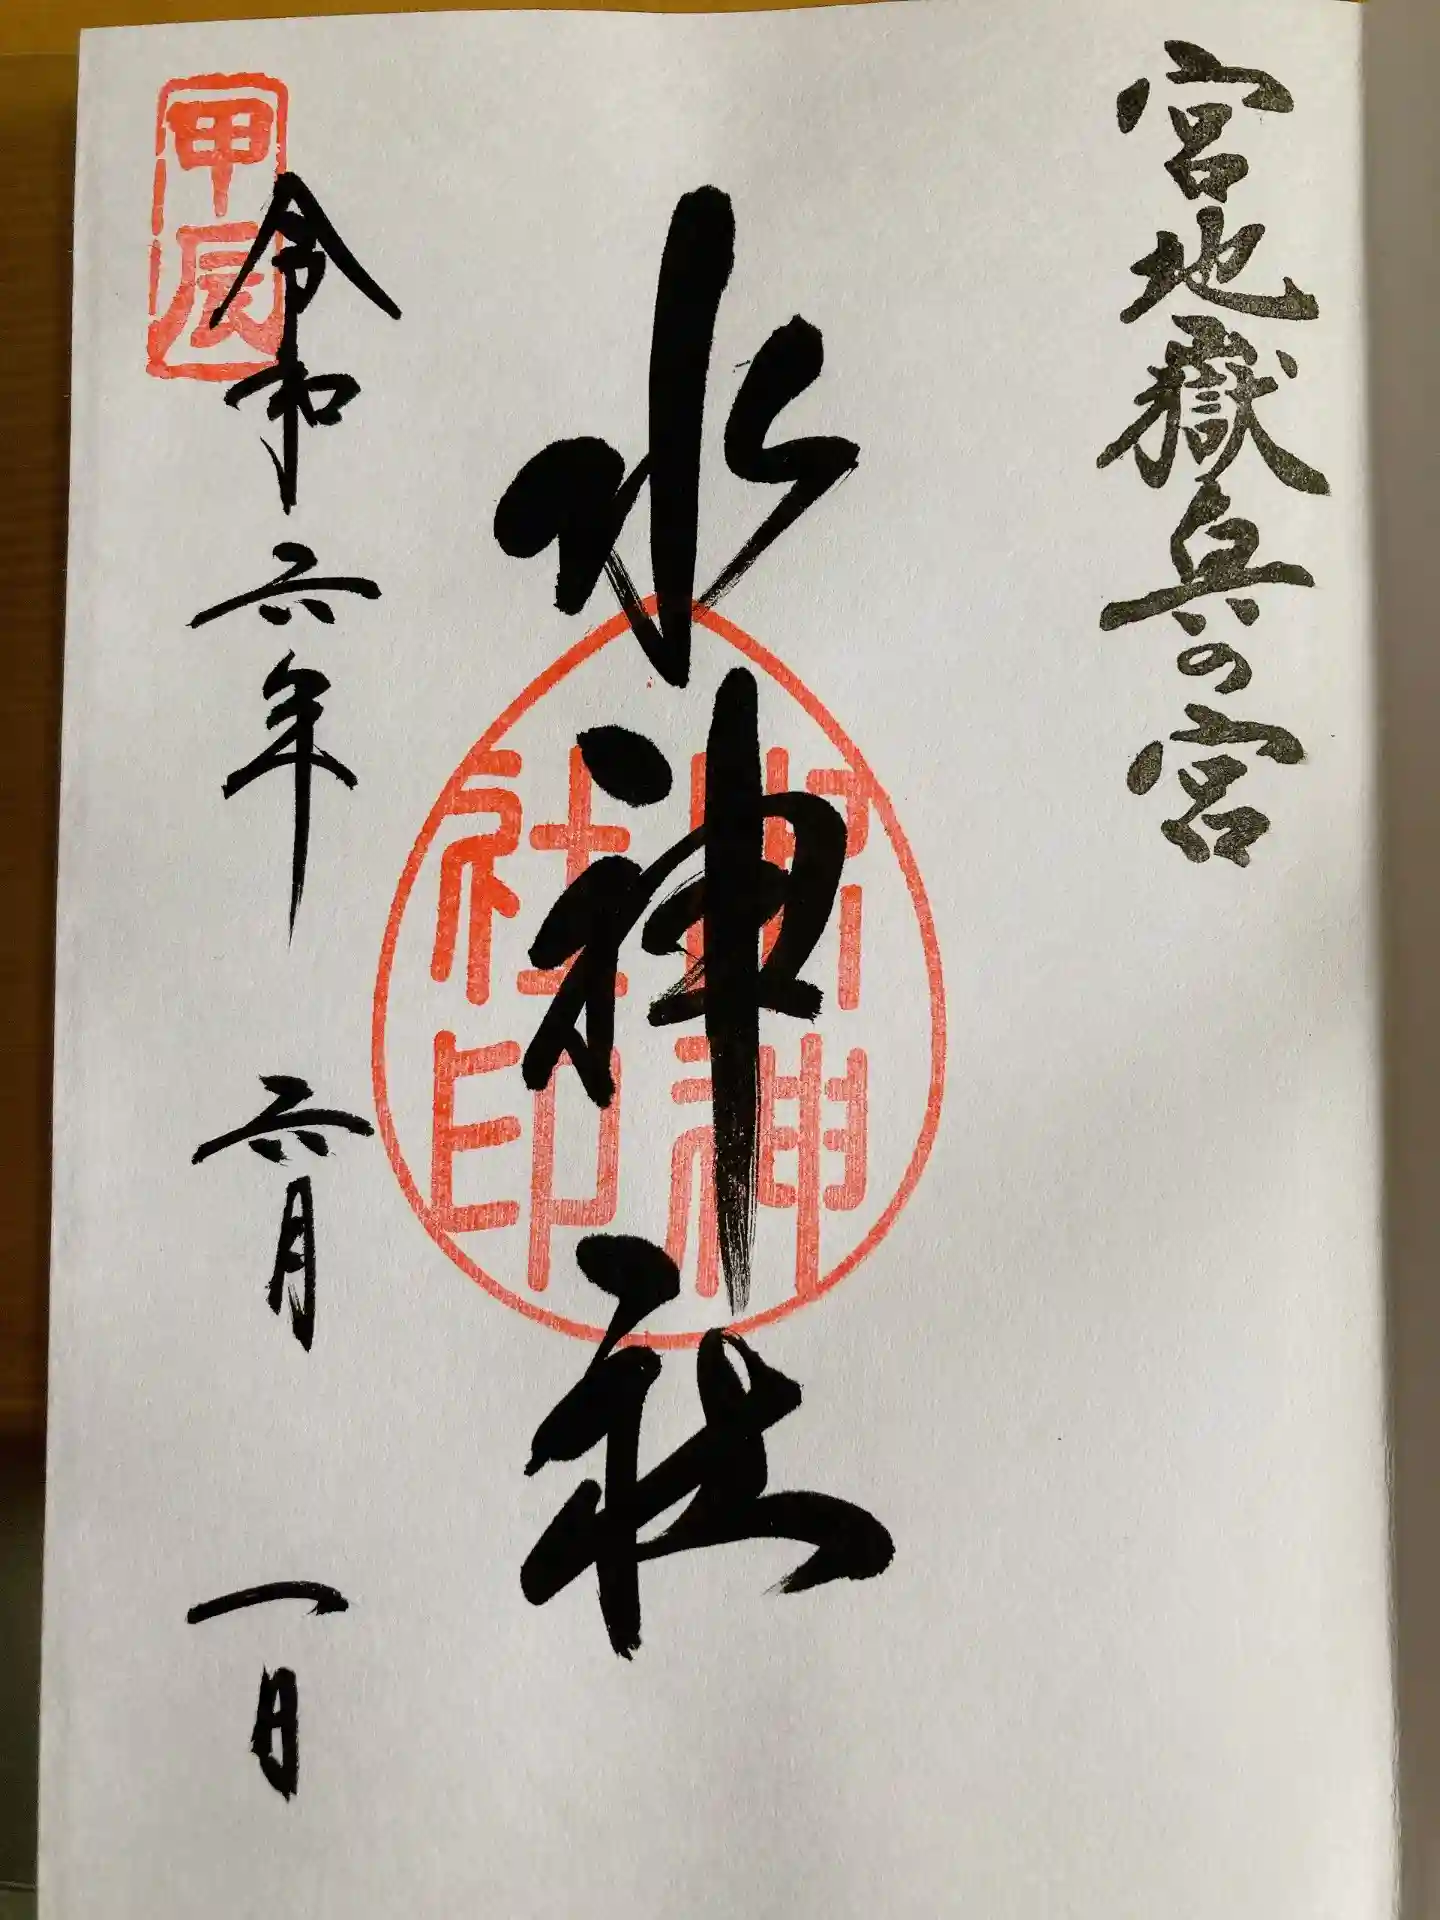 宮地嶽奥の宮
水神社
神
社印
甲辰
令和六年 六月 一日